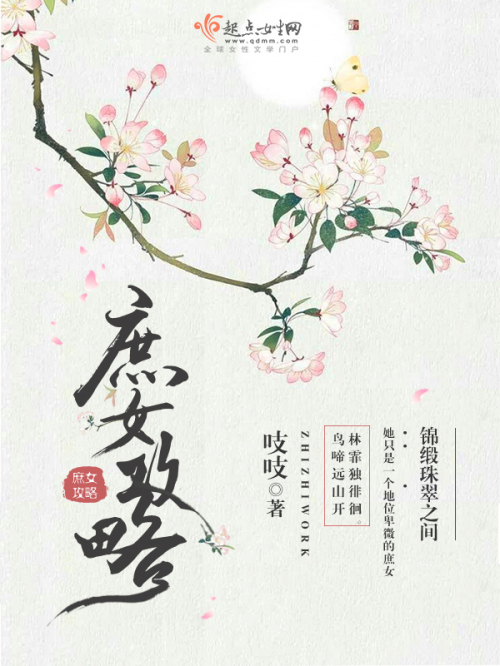 起点女生网
www.qdmm.com
全球女性文学门户
庶女攻略
庶女
攻略
吱吱◎著
ZHIZHIWORK
林霏独徘徊。
鸟啼远山开
锦缎珠翠之间
她只是一个地位卑微的庶女